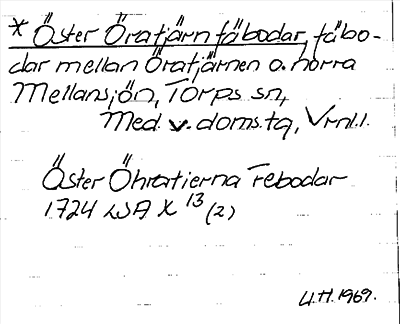 * Öster Öratjärn fäbodar, fäbo-
dar mellan Öratjärnen o. norra
Mellansjön, Torps sn,
Med. v. doms.tg, Vrnl.l.
Öster Öhratierna Febodar
1724 LSA X 13 (2)
U.H. 1969.